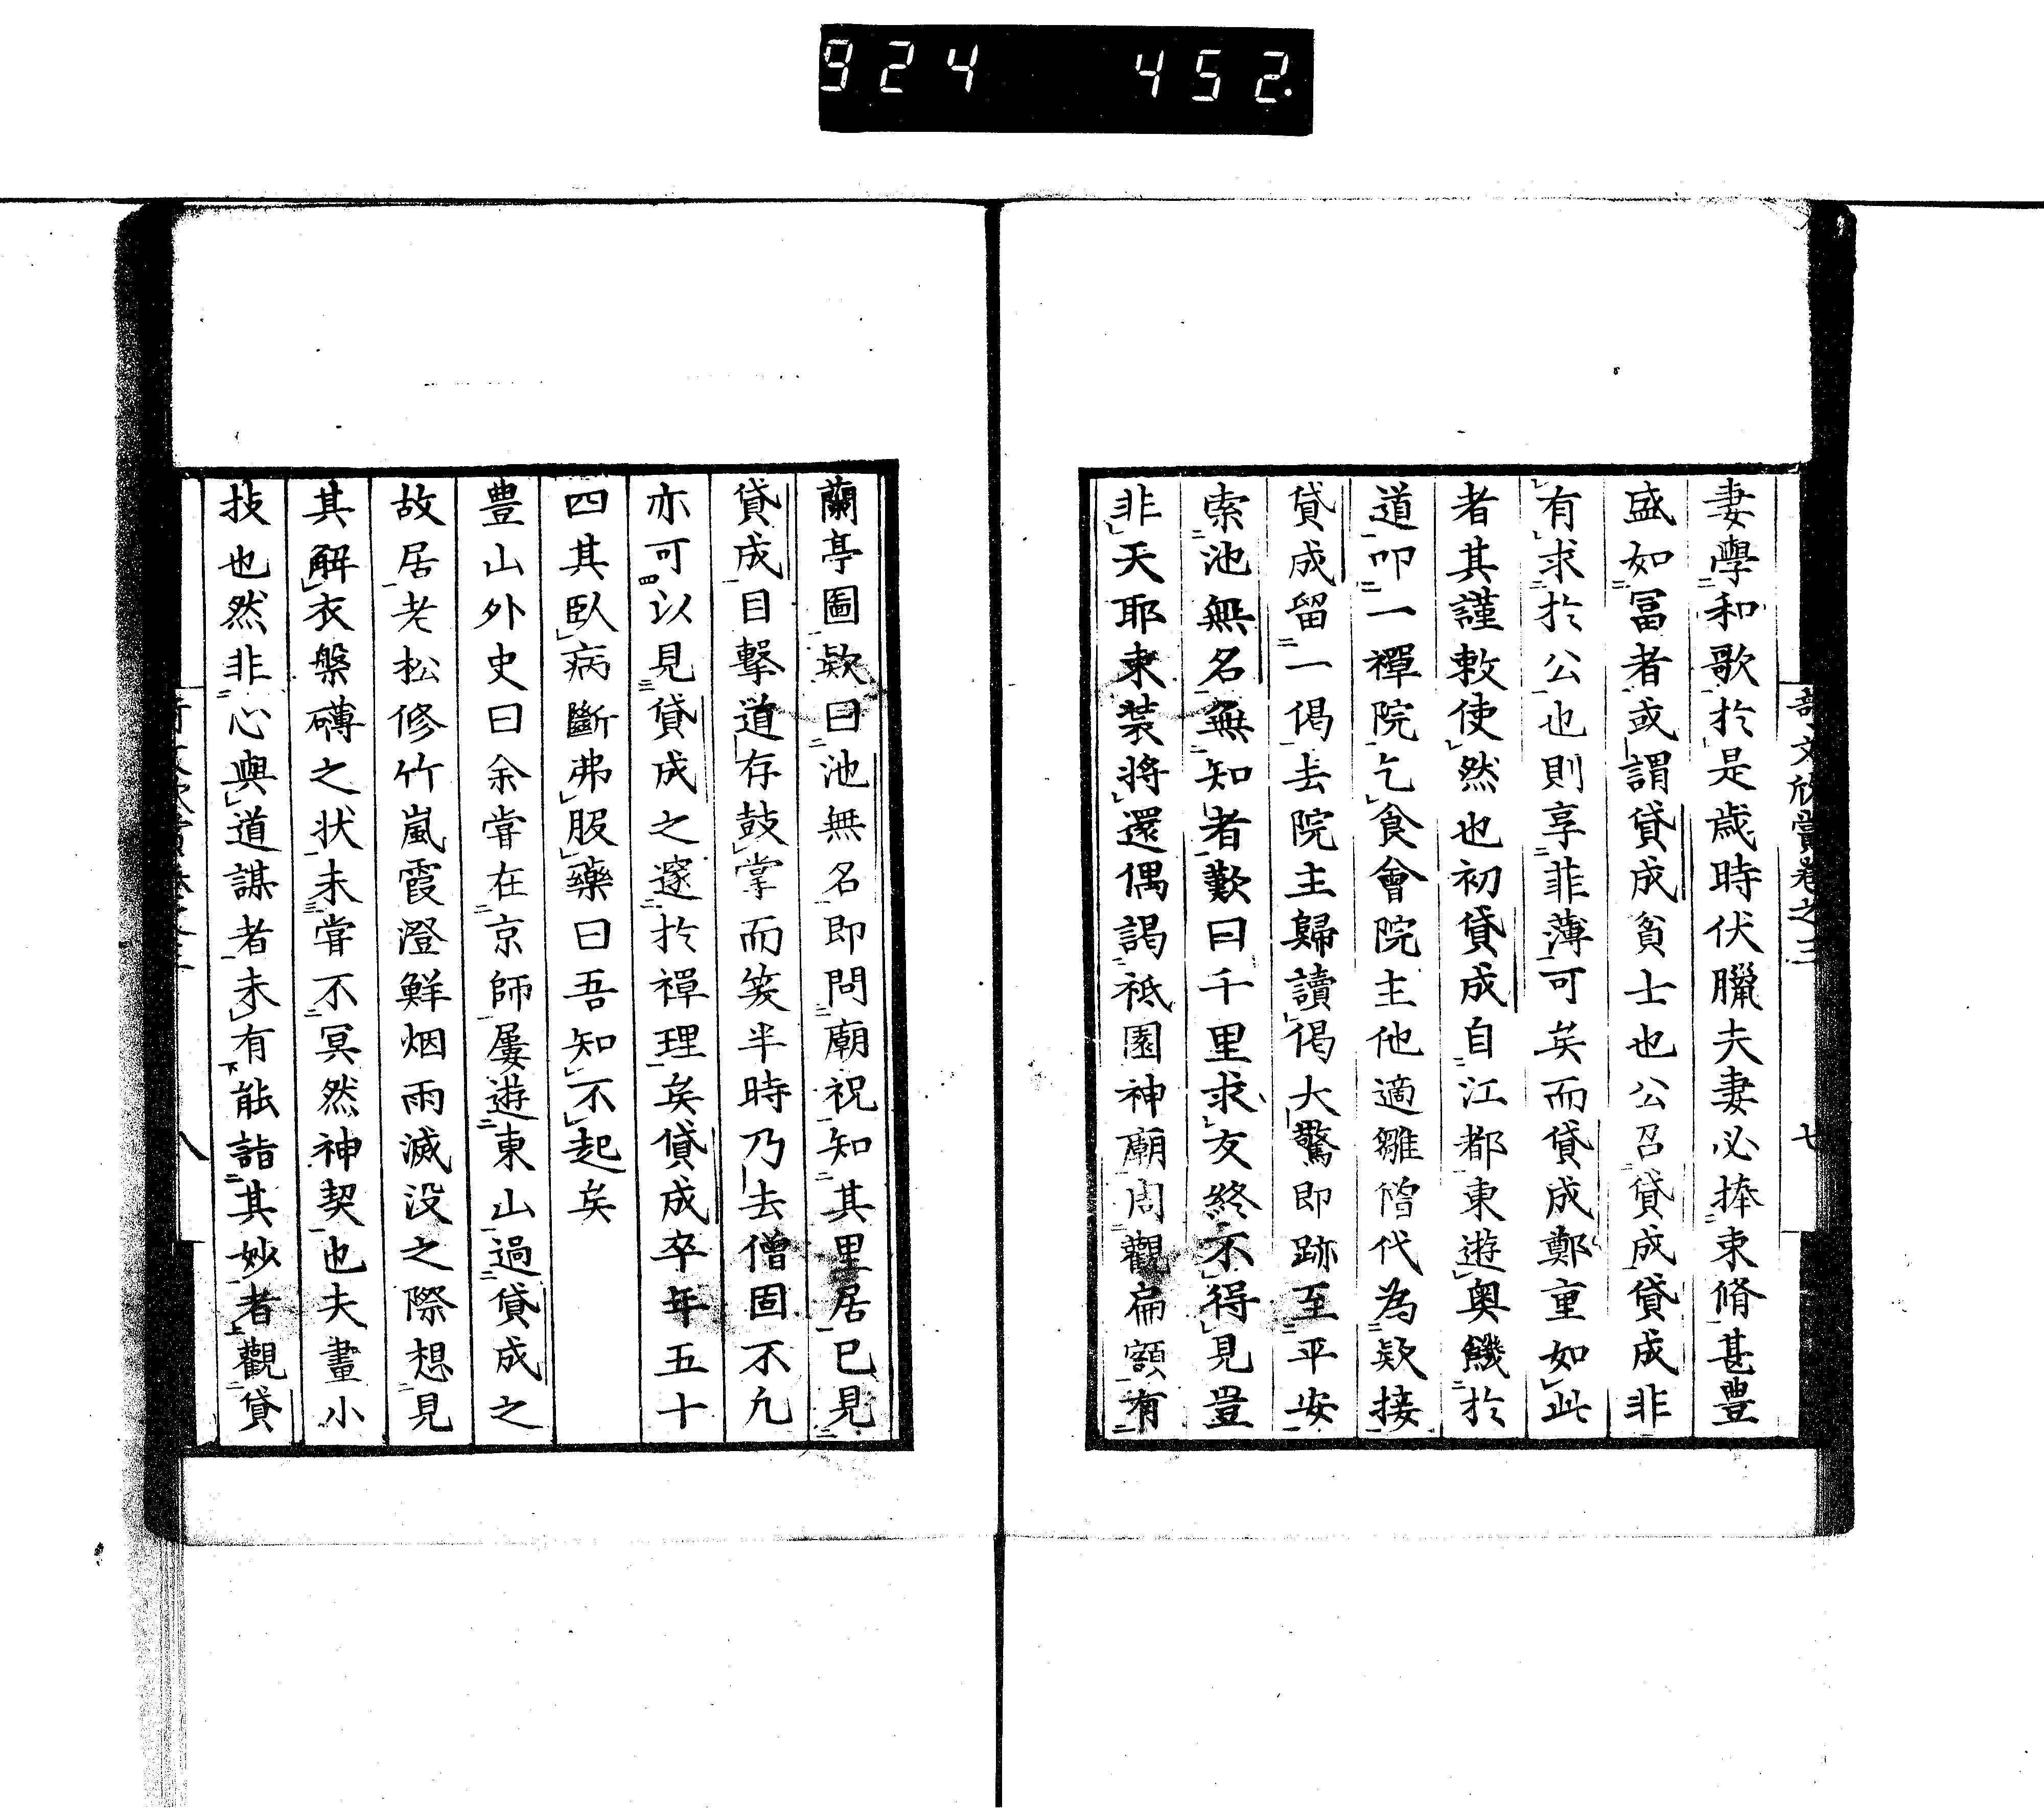 924 452.
奇文欣賞卷之三 七
妻學和歌於是歳時伏臘夫妻必捧束脩甚豊
盛如冨者或謂貸成貧士也公召貸成貸成非
有求於公也則享菲薄可矣而貸成鄭重如此
者其謹敕使然也初貸成自江都東遊奥饑於
道叩一禪院乞食會院主他適雛僧代為欵接
貸成留一偈去院主歸讀偈大驚即跡至平安
索池無名無知者歎曰千里求友終不得見豈
非天耶束装將還偶謁祇園神廟周觀扁額有
蘭亭圖欵曰池無名即問廟祝知其里居已見
貸成目撃道存鼓掌而笑半時乃去僧固不凢
亦可以見貸成之邃於禪理矣貸成卒年五十
四其臥病斷弗服藥曰吾知不起矣
豊山外史曰余甞在京師屢遊東山過貸成之
故居老松修竹嵐霞澄鮮烟雨滅没之際想見
其解衣槃礴之状未甞不冥然神契也夫畫小
技也然非心與道謀者未有能詣其妙者觀貸
八